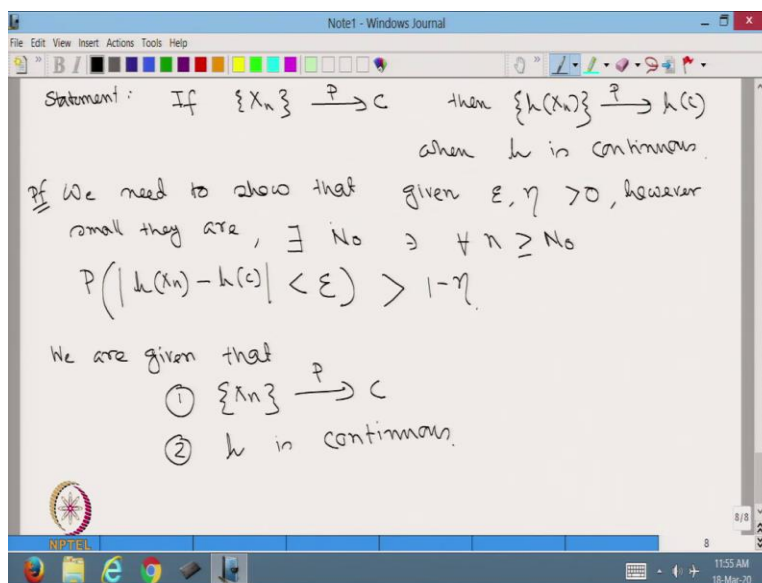 Note1 - Windows Journal
File Edit View Insert Actions Tools Help
B I
Statement: If {Xn} P→ C then {h(Xn)} P→ h(c)
when h is continuous.
Pf We need to show that given ε, η > 0, however
small they are, ∃ No ∋ ∀ n ≥ No
P(|h(Xn) - h(c)| < ε) > 1-η.
We are given that
① {Xn} P→ C
② h is continuous.
8/8
NPTEL
8
11:55 AM
18-Mar-20